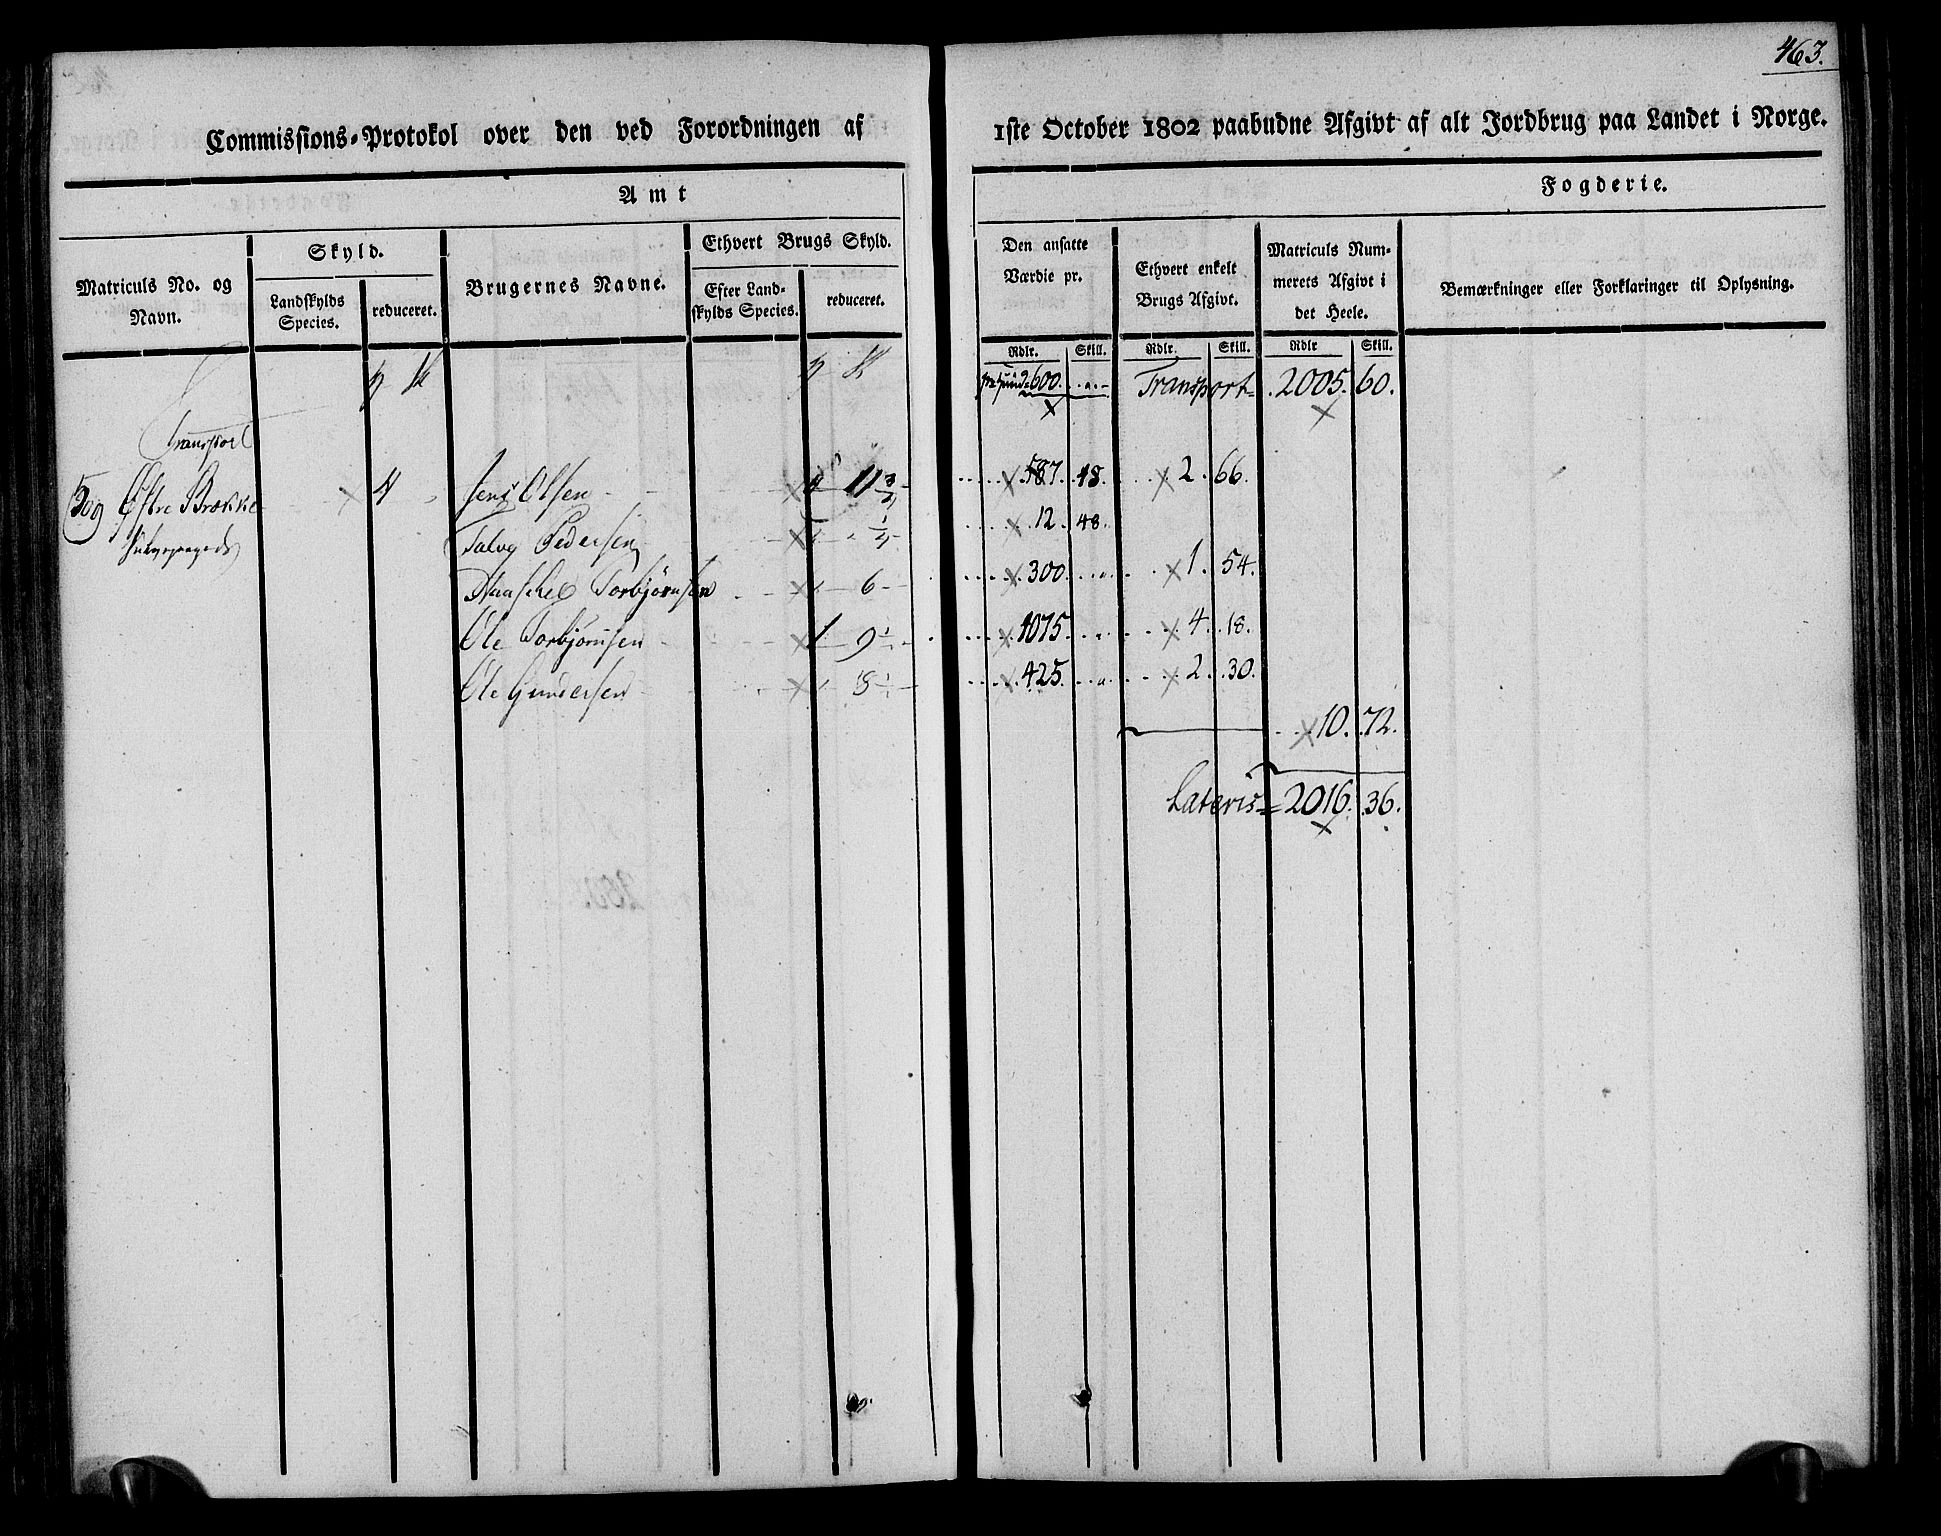 463.
Commissions-Protokol over den ved Forordningen af 1ste October 1802 paabudne Afgivt af alt Jordbrug paa Landet i Norge.
Amt Fogderie.
Matriculs No. og Navn.
Skyld.
Landskylds Species.
reduceret.
Brugernes Navne.
Ethvert Brugs Skyld.
Efter Landskylds Species.
reduceret.
Den ansatte Værdie pr.
Ethvert enkelt Brugs Afgivt.
Matriculs Nummerets Afgivt i det Heele.
Bemærkninger eller Forklaringer til Oplysning.
Rdlr. Skill. Rdlr. Skill. Rdlr Skill.
600. Transport 2005. 60.
Transport
509 Østre Brække 4 Jens Olsen 11 3/4 587. 48. 2. 66.
Talvg Pedersen 1/4 12. 48.
Torbjørnsen 6 300. 1. 54.
Ole Torbjørnsen 1 9 1/2 1075. 4. 18.
Ole Gundersen 8 1/2 425. 2. 30.
10. 72.
Lateris 2016. 36.